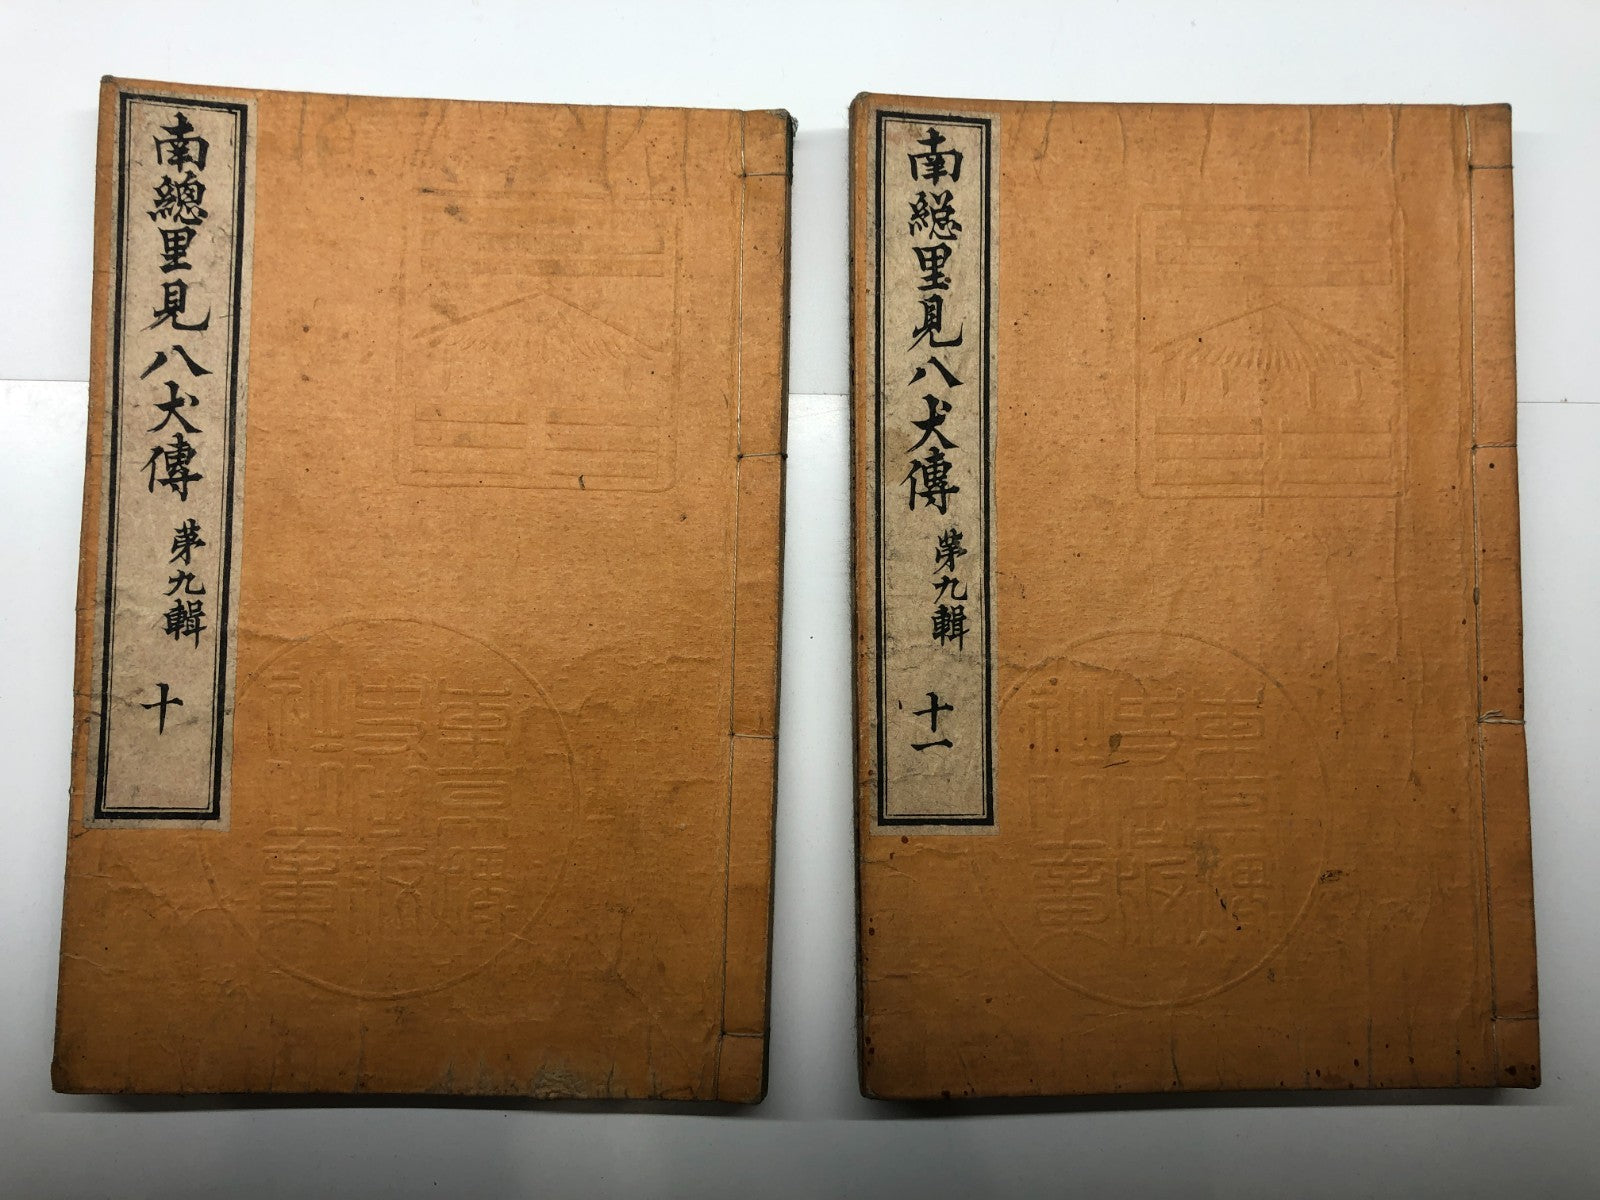 南總里見八犬傳 苐九輯 十
南総里見八犬傳 第九輯 十一